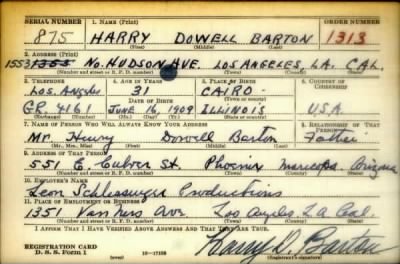 SERIAL NUMBER 1. NAME (Print) ORDER NUMBER
875 HARRY DOWELL BARTON 1313
(First) (Middle) (Last)
2. ADDRESS (Print)
1553 1355 No. HUDSON AVE. LOS ANGELES, LA. CAL.
(Number and street or R. F. D. number) (Town) (County) (State)
3. TELEPHONE 4. AGE IN YEARS 5. PLACE OF BIRTH 6. COUNTRY OF CITIZENSHIP
LOS. ANGELES 31 CAIRO
DATE OF BIRTH (Town or county)
GR. 4161 JUNE 16, 1909 ILLINOIS U.S.A.
(Exchange) (Number) (Mo.) (Day) (Yr.) (State or country)
7. NAME OF PERSON WHO WILL ALWAYS KNOW YOUR ADDRESS 8. RELATIONSHIP OF THAT PERSON
Mr. Henry Dowell Barton Father
(Mr., Mrs., Miss) (First) (Middle) (Last)
9. ADDRESS OF THAT PERSON
551 E. Culver St. Phoenix Maricopa Arizona
(Number and street or R. F. D. number) (Town) (County) (State)
10. EMPLOYER'S NAME
Leon Schlesinger Productions
11. PLACE OF EMPLOYMENT OR BUSINESS
1351 Van Ness Ave. Los Angeles L.A. Cal.
(Number and street or R. F. D. number) (Town) (County) (State)
I AFFIRM THAT I HAVE VERIFIED ABOVE ANSWERS AND THAT THEY ARE TRUE.
REGISTRATION CARD
D. S. S. Form 1 (over) 16—17105 Harry D. Barton